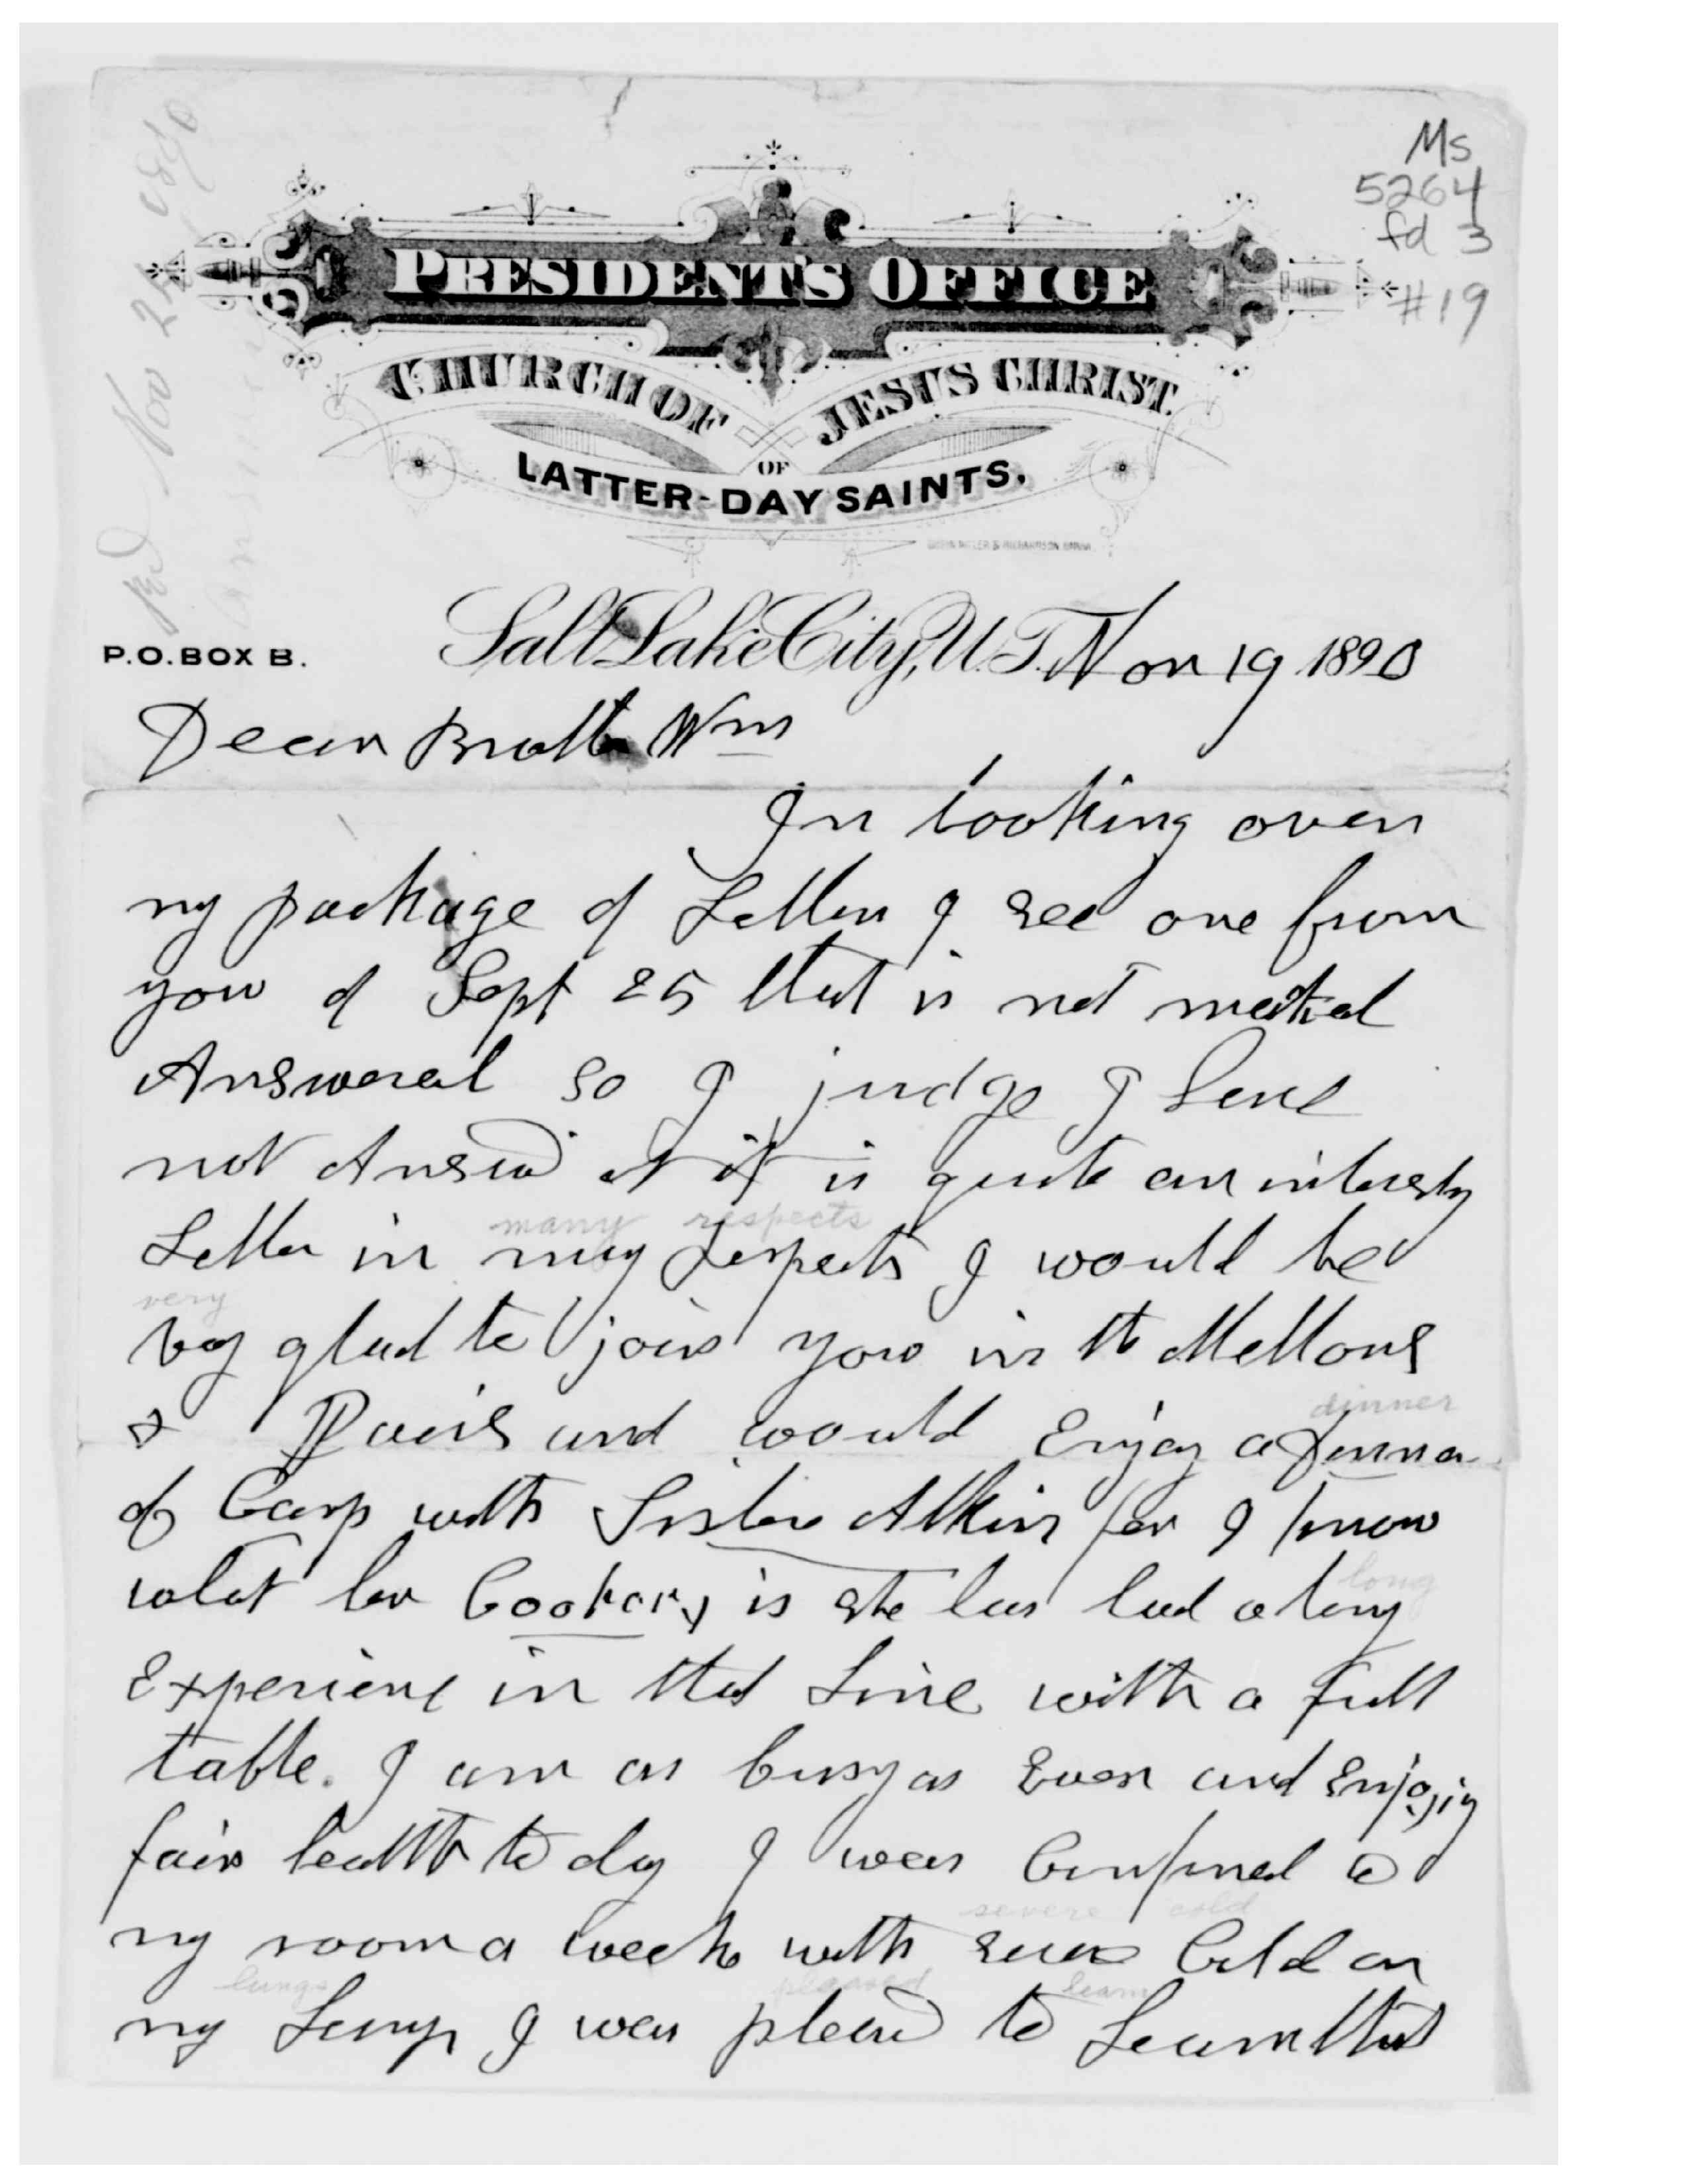 Ms
5264
fd 3
#19
Recd Nov 24 1890
PRESIDENT'S OFFICE
CHURCH OF JESUS CHRIST
OF
LATTER-DAY SAINTS.
P.O. BOX B. Salt Lake City, U.T. Nov 19 1890
Dear Brother Wm
In looking over
my package of Letters I see one from
you of Sept 25 that is not marked
Answered so I judge I have
not Answd it it is quite an interesty
many respects
Letter in may Respects I would be
very
very glad to join you in the Mellons
dinner
& Pairs and would Enjoy a Dinner
of Carp with Sister Atkin for I know
long
what her Cookery is she has had a long
Experience in that Line with a full
table. I am as busy as Ever and Enjoyig
fair health to day I was Confined to
severe cold
my room a week with severe Cold on
lungs pleased learn
my Lungs I was pleasd to Learn that